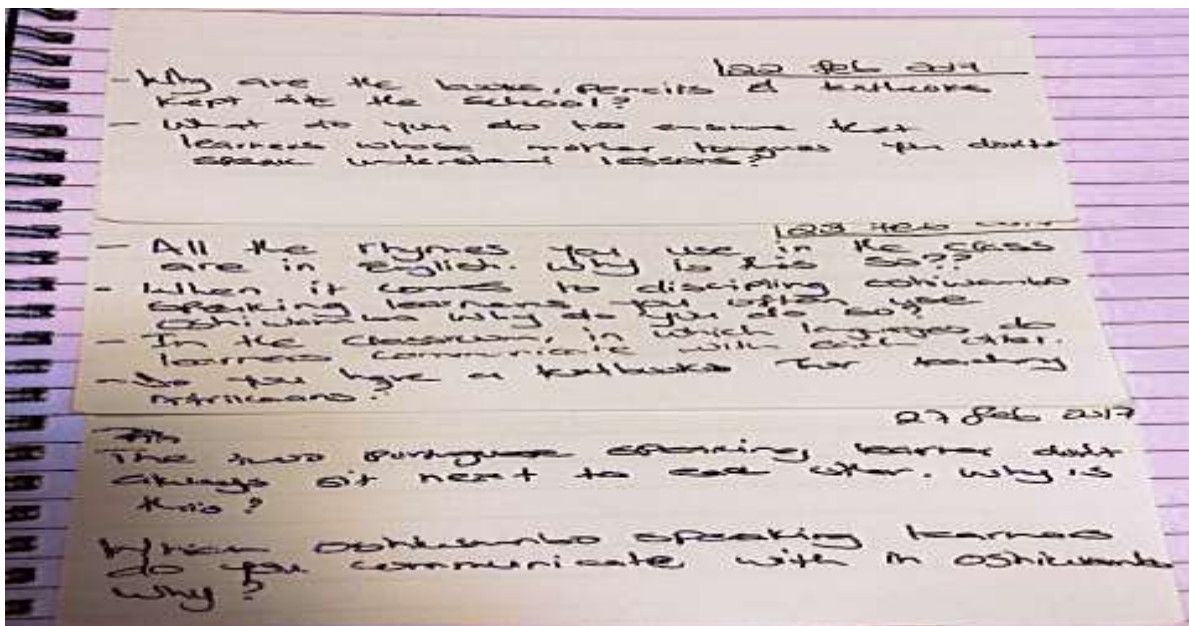 22 Feb 2017
- Why are the books, pencils & textbooks
kept at the school?
- What do you do to ensure that
learners whose mother tongues you don't
speak understand lessons?
23 Feb
- All the rhymes you use in the class
are in English. Why is this so??
- When it comes to discipling oshiwambo
speaking learners, you often use
Oshiwambo why do you do so?
- In the classroom, in which languages do
learners communicate with each other.
- Do you have a textbooks for teaching
Afrikaans?
27 Feb 2017
The two Portuguese speaking learner don't
always sit next to each other. Why is
this?
Which Oshiwambo speaking learners
do you communicate with in Oshiwambo
Why?